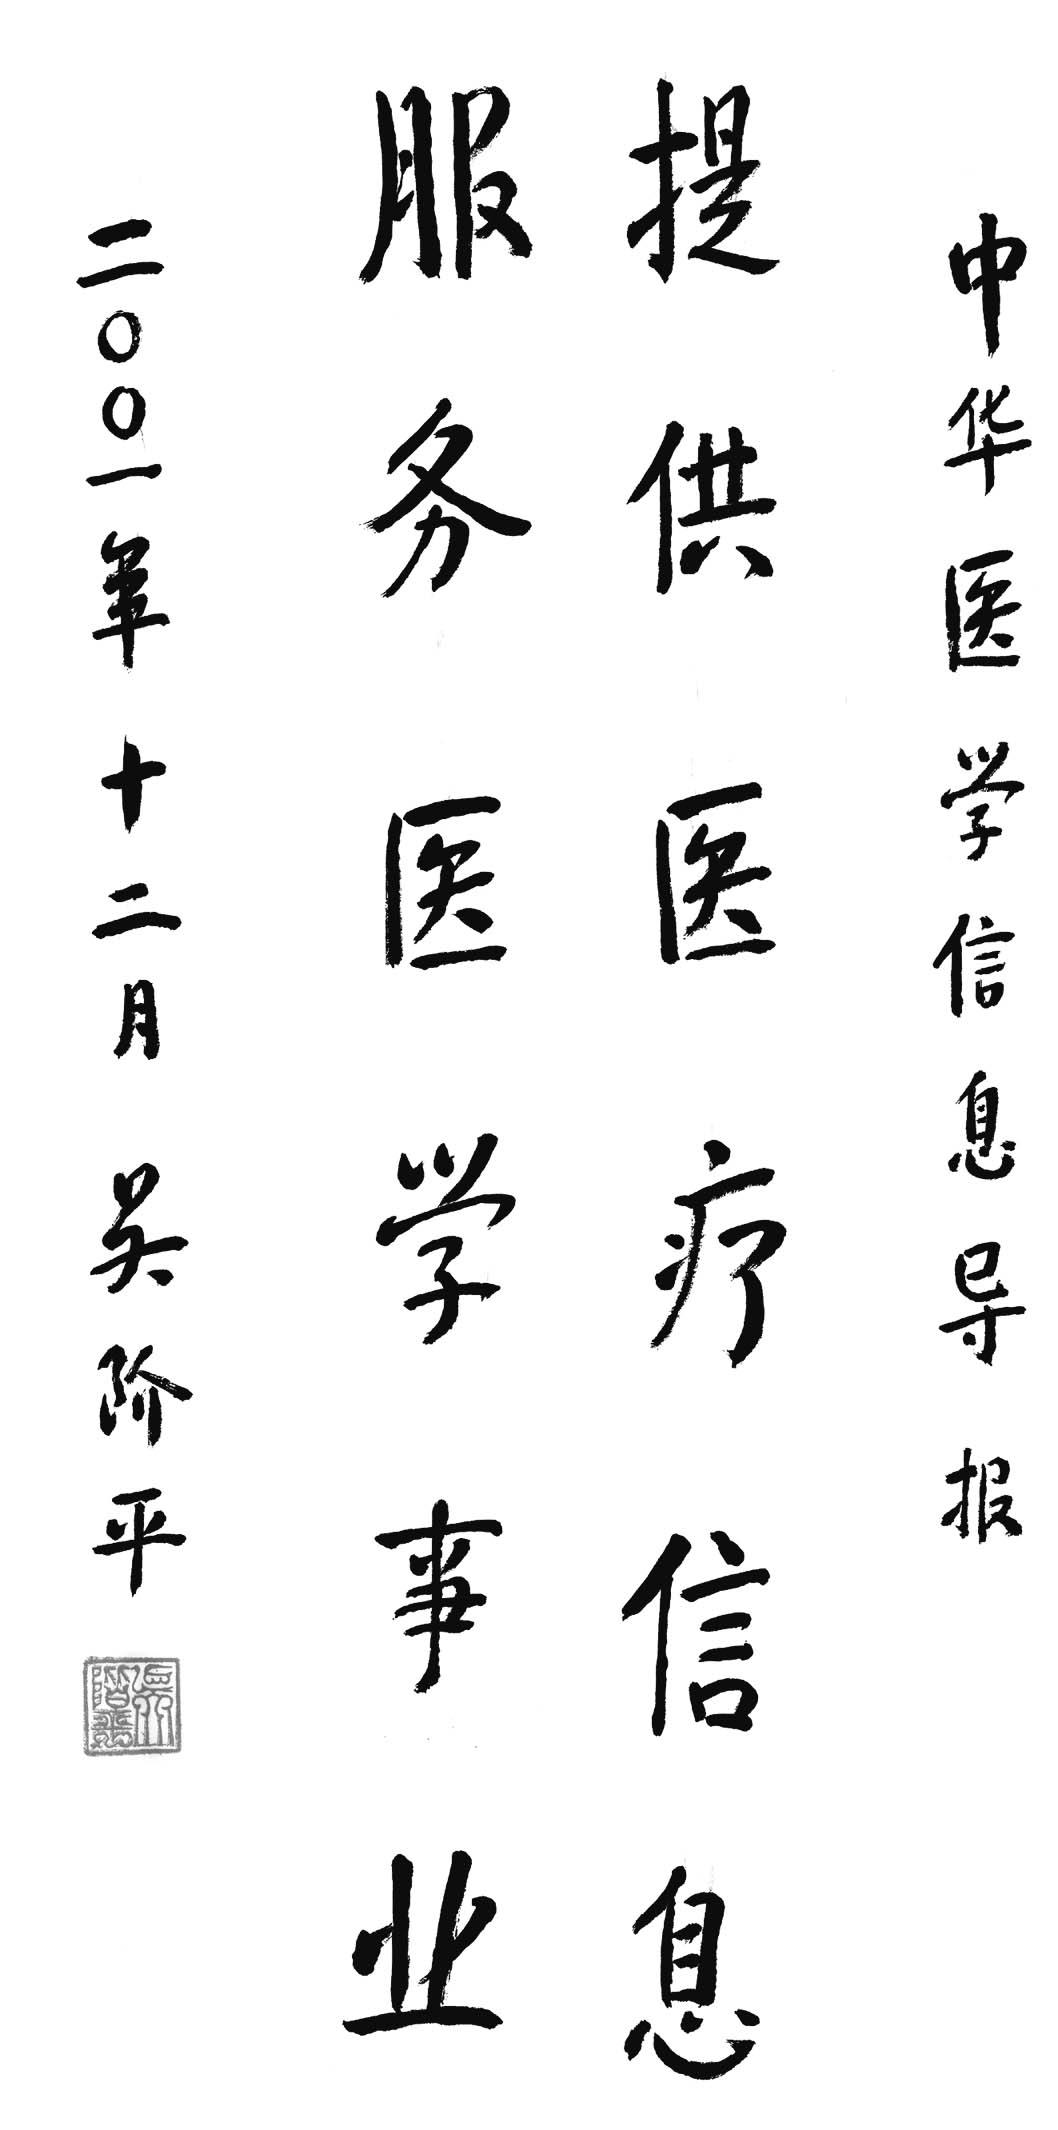 中华医学信息导报
提供医疗信息
服务医学事业
二〇〇一年十二月 吴阶平